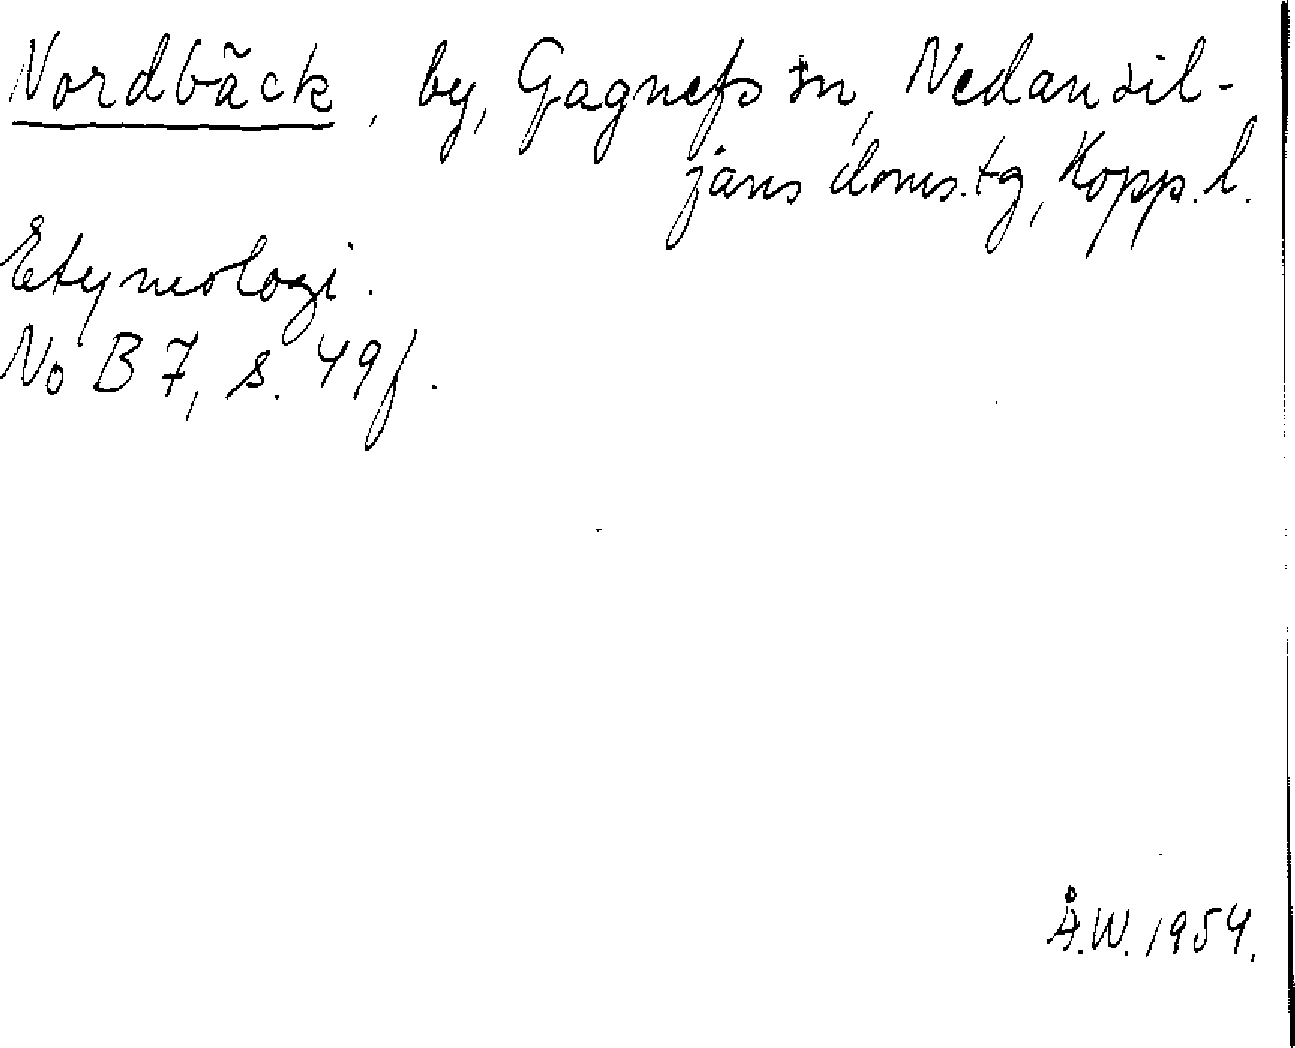 Nordbäck, by, Gagnefs sn, Nedansil-
jans doms.tg, Kopp. l.
Etymologi.
No B 7, s. 49 f.
Å.W. 1954.